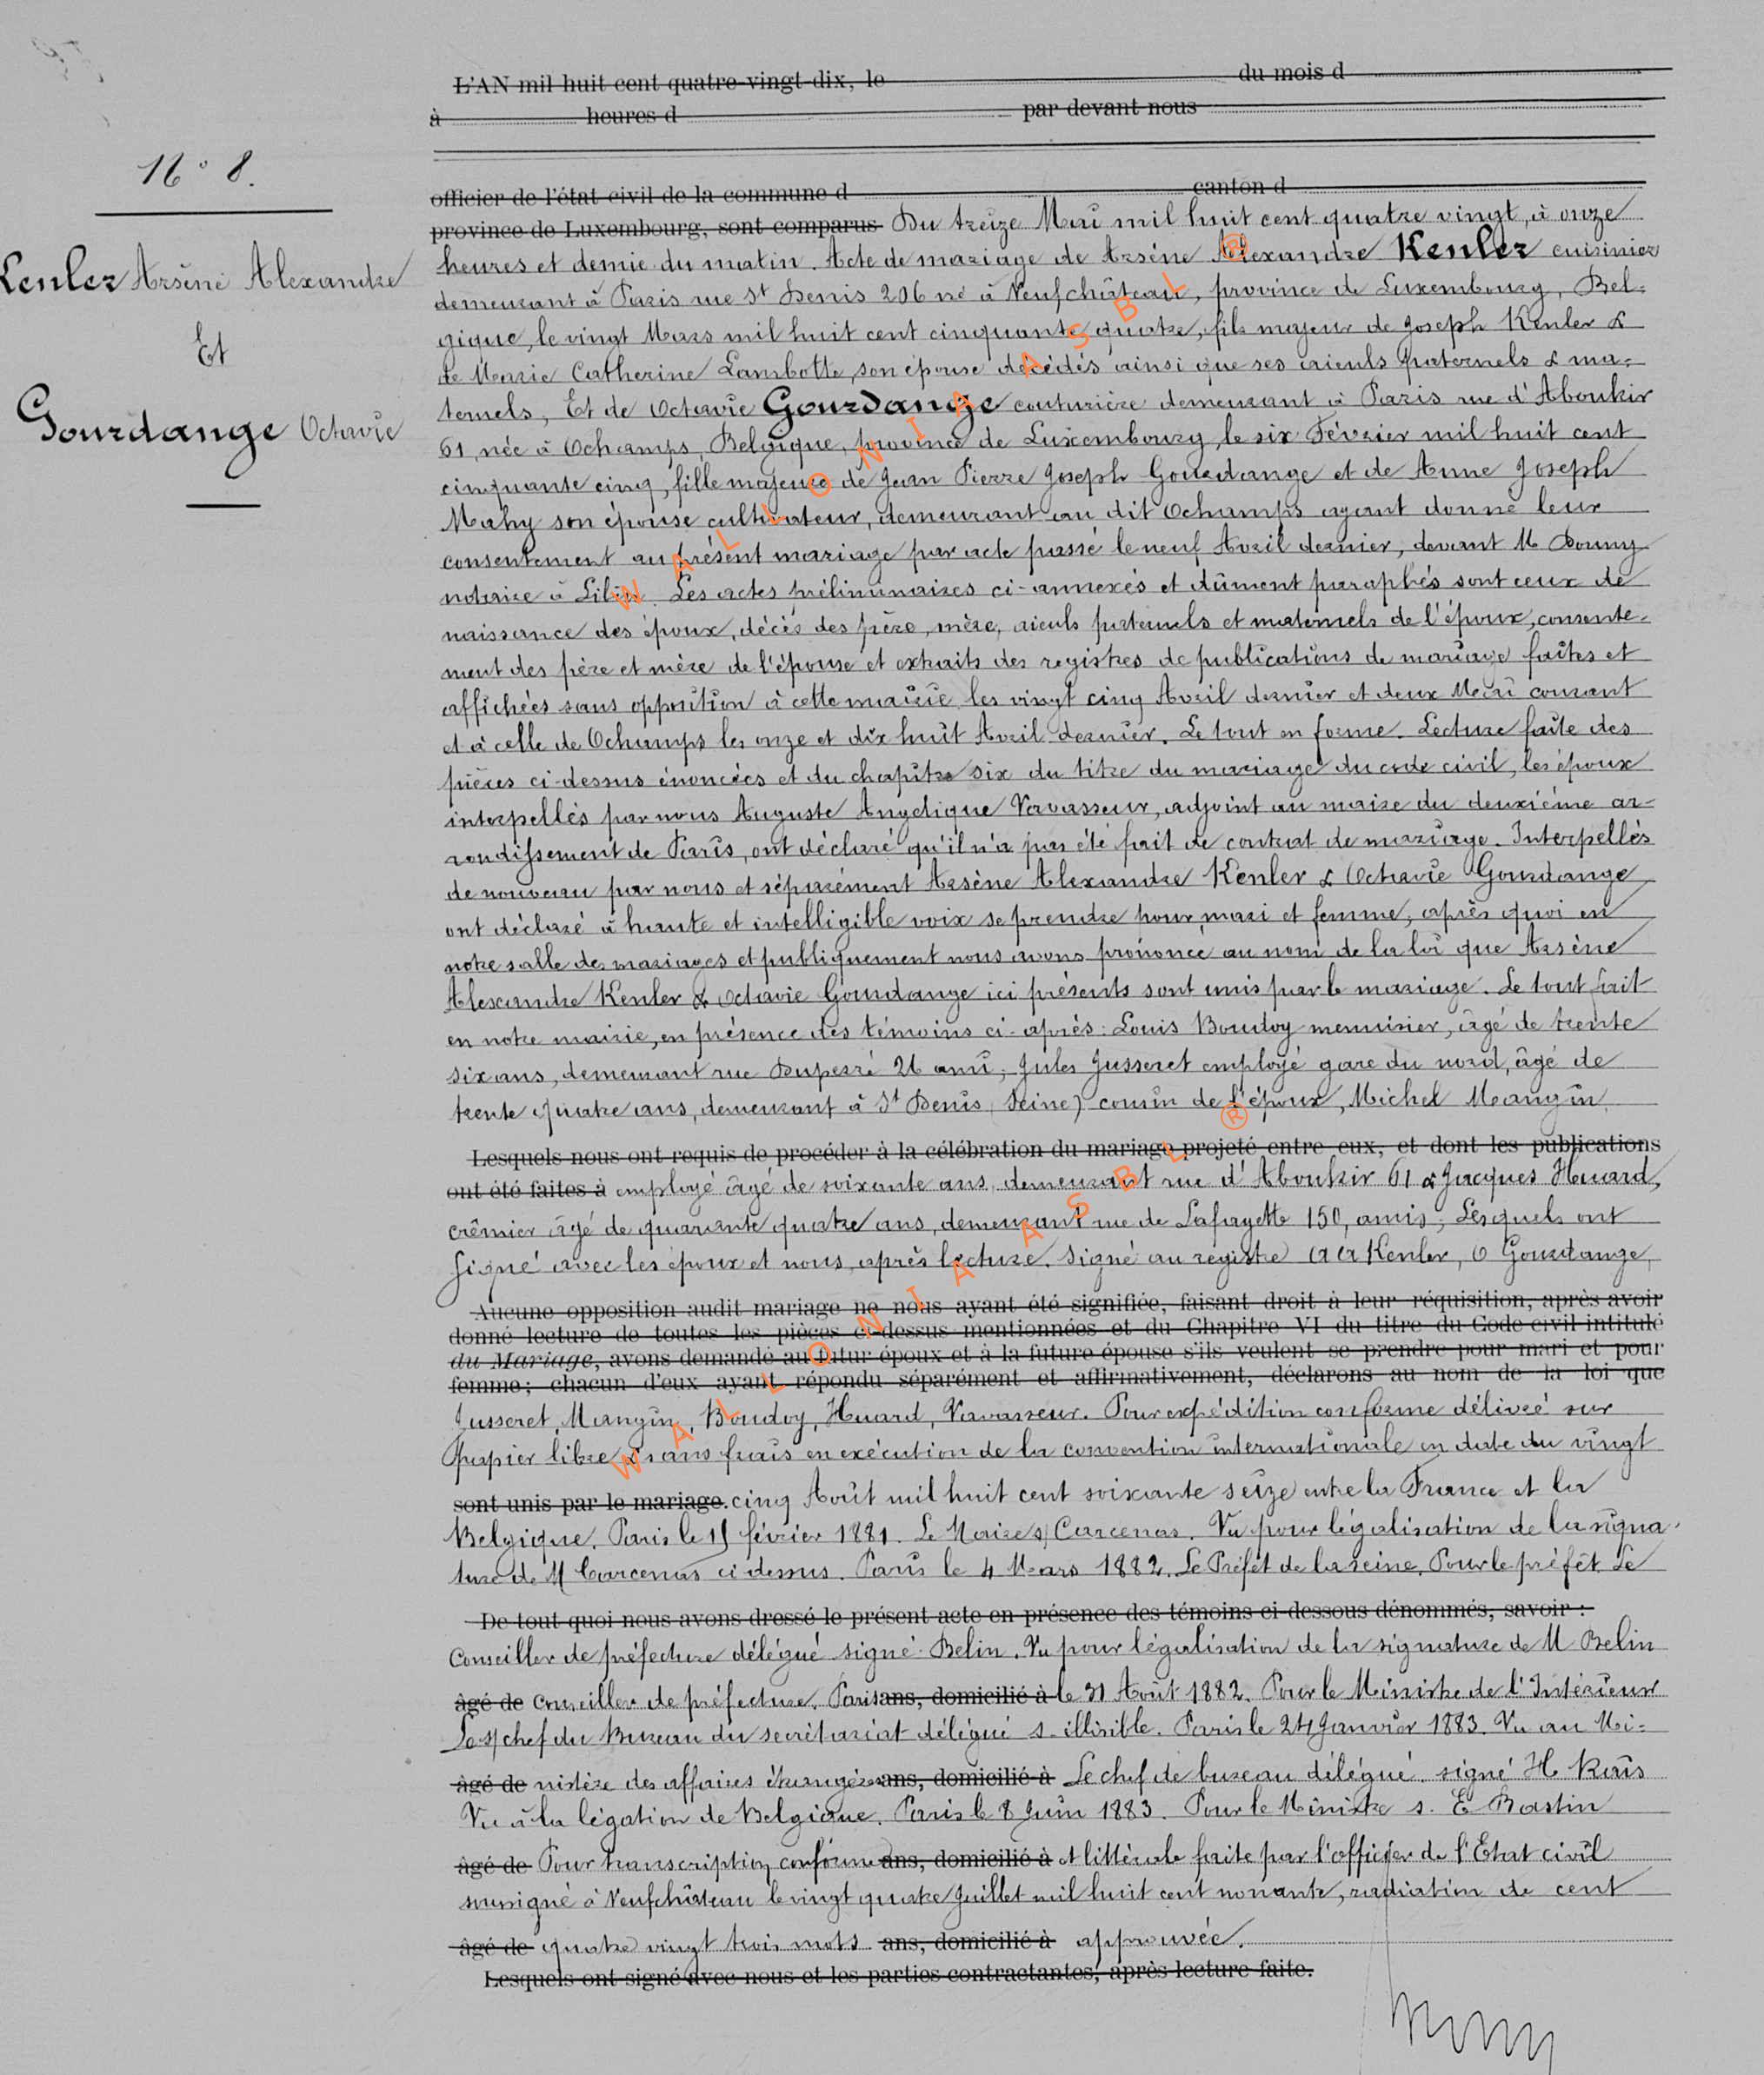 L'AN mil huit cent quatre-vingt-dix, le du mois d
à heures d par devant nous
N° 8.
officier de l'état civil de la commune d canton d
province de Luxembourg, sont comparus Du treize Mai mil huit cent quatre vingt, à onze
heures et demie du matin. Acte de mariage de Arsène Alexandre Kenler cuisinier
Kenler Arsène Alexandre
demeurant à Paris rue St Denis 206 né à Neufchâteau, province de Luxembourg, Bel-
gique, le vingt Mars mil huit cent cinquante quatre, fils majeur de Joseph Kenler &
Et
de Marie Catherine Lambotte, son épouse décédés ainsi que ses aïeuls paternels & ma-
ternels, Et de Octavie Gourdange couturière demeurant à Paris rue d'Aboukir
Gourdange Octavie
61, née à Ochamps, Belgique, province de Luxembourg, le six Février mil huit cent
cinquante cinq, fille majeure de Jean Pierre Joseph Gourdange et de Anne Joseph
Mahy son épouse cultivateur, demeurant au dit Ochamps ayant donné leur
consentement au présent mariage par acte passé le neuf Avril dernier, devant M Dourny
notaire à Libin. Les actes préliminaires ci-annexés et dûment paraphés sont ceux de
naissance des époux, décès des père, mère, aïeuls paternels et maternels de l'époux, consente-
ment des père et mère de l'épouse et extraits des registres de publications de mariage faites et
affichées sans opposition à cette mairie, les vingt cinq Avril dernier et deux Mai courant
et à celle de Ochamps les onze et dix huit Avril dernier. Le tout en forme. Lecture faite des
pièces ci-dessus énoncées et du chapitre six du titre du mariage du code civil, les époux
interpellés par nous Auguste Angélique Vavasseur, adjoint au maire du deuxième ar-
rondissement de Paris, ont déclaré qu'il n'a pas été fait de contrat de mariage. Interpellés
de nouveau par nous et séparément Arsène Alexandre Kenler & Octavie Gourdange
ont déclaré à haute et intelligible voix se prendre pour mari et femme, après quoi en
notre salle des mariages et publiquement nous avons prononcé au nom de la loi que Arsène
Alexandre Kenler & Octavie Gourdange ici présents sont unis par le mariage. Le tout fait
en notre mairie, en présence des témoins ci-après: Louis Boudoy menuisier, âgé de trente
six ans, demeurant rue Duperré 26 ami, Jules Jusseret employé gare du nord, âgé de
trente quatre ans, demeurant à St Denis (Seine) cousin de l'époux, Michel Mangin
Lesquels nous ont requis de procéder à la célébration du mariage projeté entre eux, et dont les publications
ont été faites à employé âgé de soixante ans, demeurant rue d'Aboukir 61 & Jacques Huard,
crêmier âgé de quarante quatre ans, demeurant rue de Lafayette 150, amis; Lesquels ont
signé avec les époux et nous, après lecture. Signé au registre A A Kenler, O Gourdange,
Aucune opposition audit mariage ne nous ayant été signifiée, faisant droit à leur réquisition, après avoir
donné lecture de toutes les pièces ci-dessus mentionnées et du Chapitre VI du titre du Code civil intitulé
du Mariage, avons demandé au futur époux et à la future épouse s'ils veulent se prendre pour mari et pour
femme; chacun d'eux ayant répondu séparément et affirmativement, déclarons au nom de la loi que
Jusseret, Mangin, Boudoy, Huard, Vavasseur. Pour expédition conforme délivré sur
papier libre & sans frais en exécution de la convention internationale en date du vingt
sont unis par le mariage. cinq Août mil huit cent soixante seize entre la France et la
Belgique. Paris le 15 février 1881. Le Maire s/ Carcenas. Vu pour légalisation de la signa-
ture de M Carcenas ci dessus. Paris le 4 Mars 1882. Le Préfet de la seine. Pour le préfêt. Le
De tout quoi nous avons dressé le présent acte en présence des témoins ci-dessous dénommés, savoir :
Conseiller de préfecture délégué signé Belin. Vu pour légalisation de la signature de M Belin
âgé de Conseiller de préfecture. Paris ans, domicilié à le 31 Août 1882. Pour le Ministre de l'Intérieur
Le s/chef du Bureau du secrétariat délégué s. illisible. Paris le 24 Janvier 1883. Vu au Mi-
âgé de nistère des affaires étrangères ans, domicilié à Le chef de bureau délégué. signé H
Vu à la légation de Belgique. Paris le 8 Juin 1883. Pour le Ministre s. E Bastin
âgé de Pour transcription conforme ans, domicilié à et littérale faite par l'officier de l'Etat civil
soussigné à Neufchâteau le vingt quatre Juillet mil huit cent nonante, radiation de cent
âgé de quatre vingt trois mots ans, domicilié à approuvée.
Lesquels ont signé avec nous et les parties contractantes, après lecture faite.
WALLONIA ASBL ®
WALLONIA ASBL ®